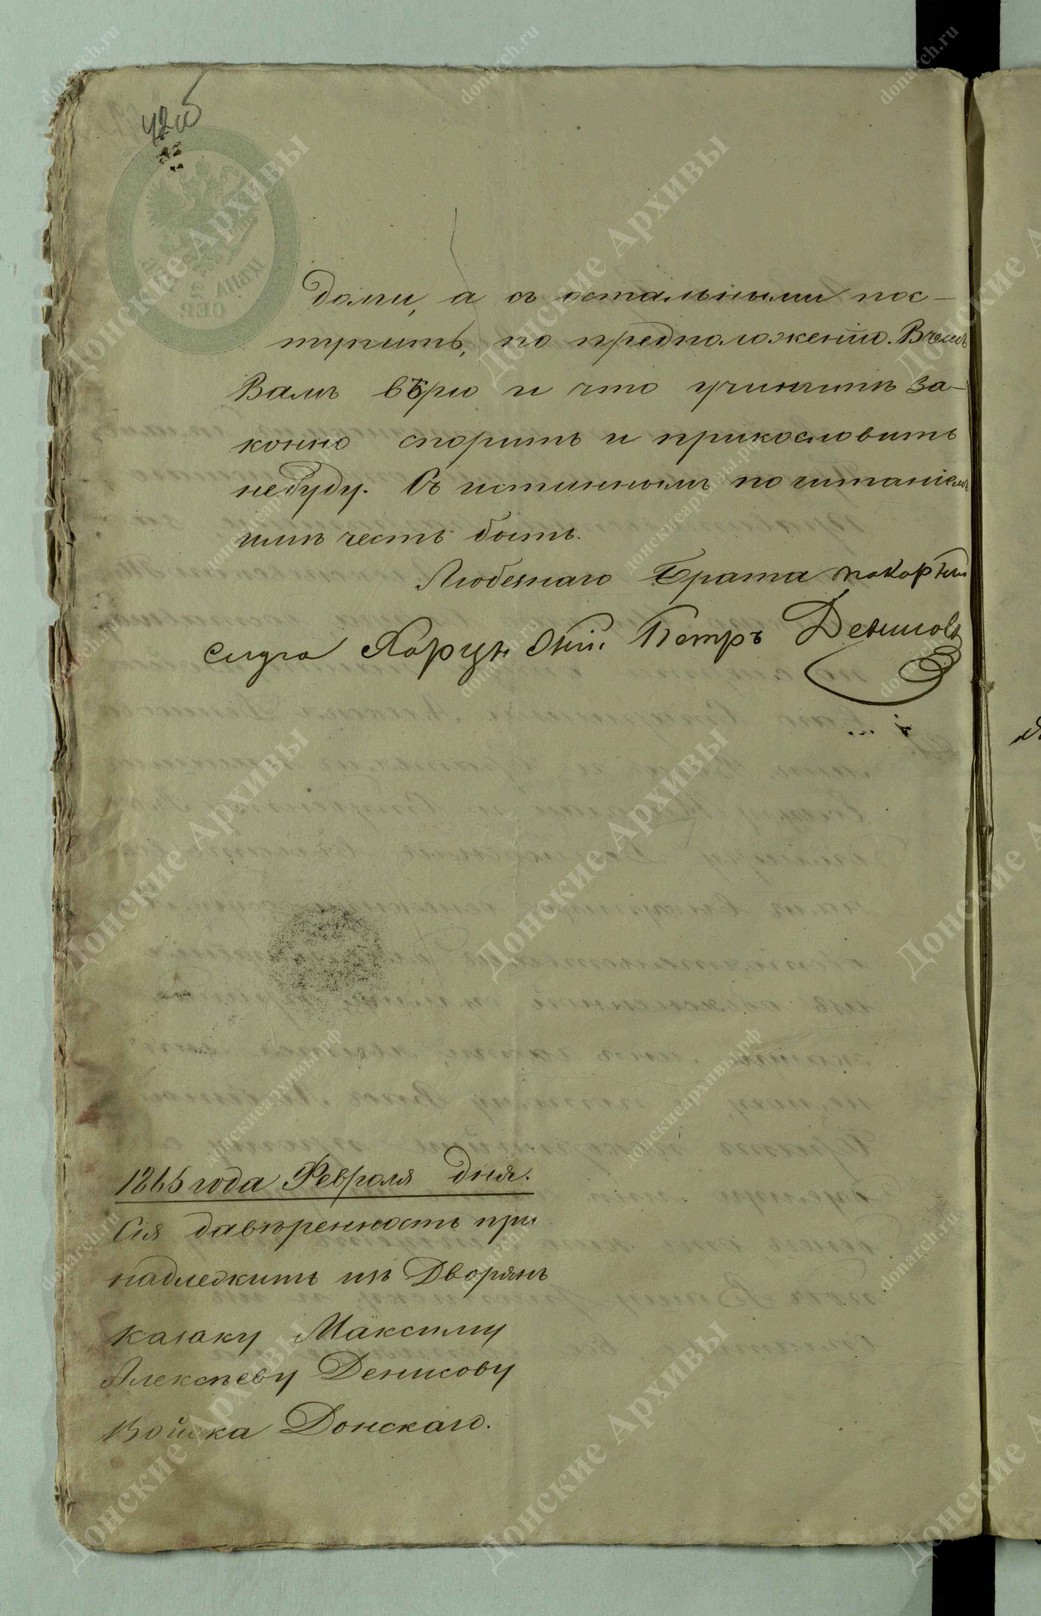 42об
доли, а съ остальными пос-
тупить, по предположенію. Вчемъ
Вамъ вѣрю и что учините за-
конно спорить и прикословить
небуду. Съ истиннымъ почитаніемъ
имѣю честь быть.
Любезнаго Брата покорный
слуга Хорунжій Петръ Денисовъ
1865 года Февраля дня.
Сія давѣренность при
надлежитъ изъ Дворянъ
казаку Максиму
Алексѣеву Денисову
Войска Донскаго.
ЦѢНА
2
СЕР.
Донские Архивы
donarch.ru
донскиеархивы.рф